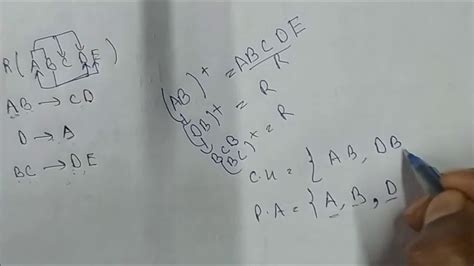 R(ABCDE)
AB → CD
D → A
BC → DE
(AB)⁺ = ABCDE
R
(DB)⁺ = R
BCB
(BC)⁺ = R
C.K = { AB, DB
P.A = { A, B, D